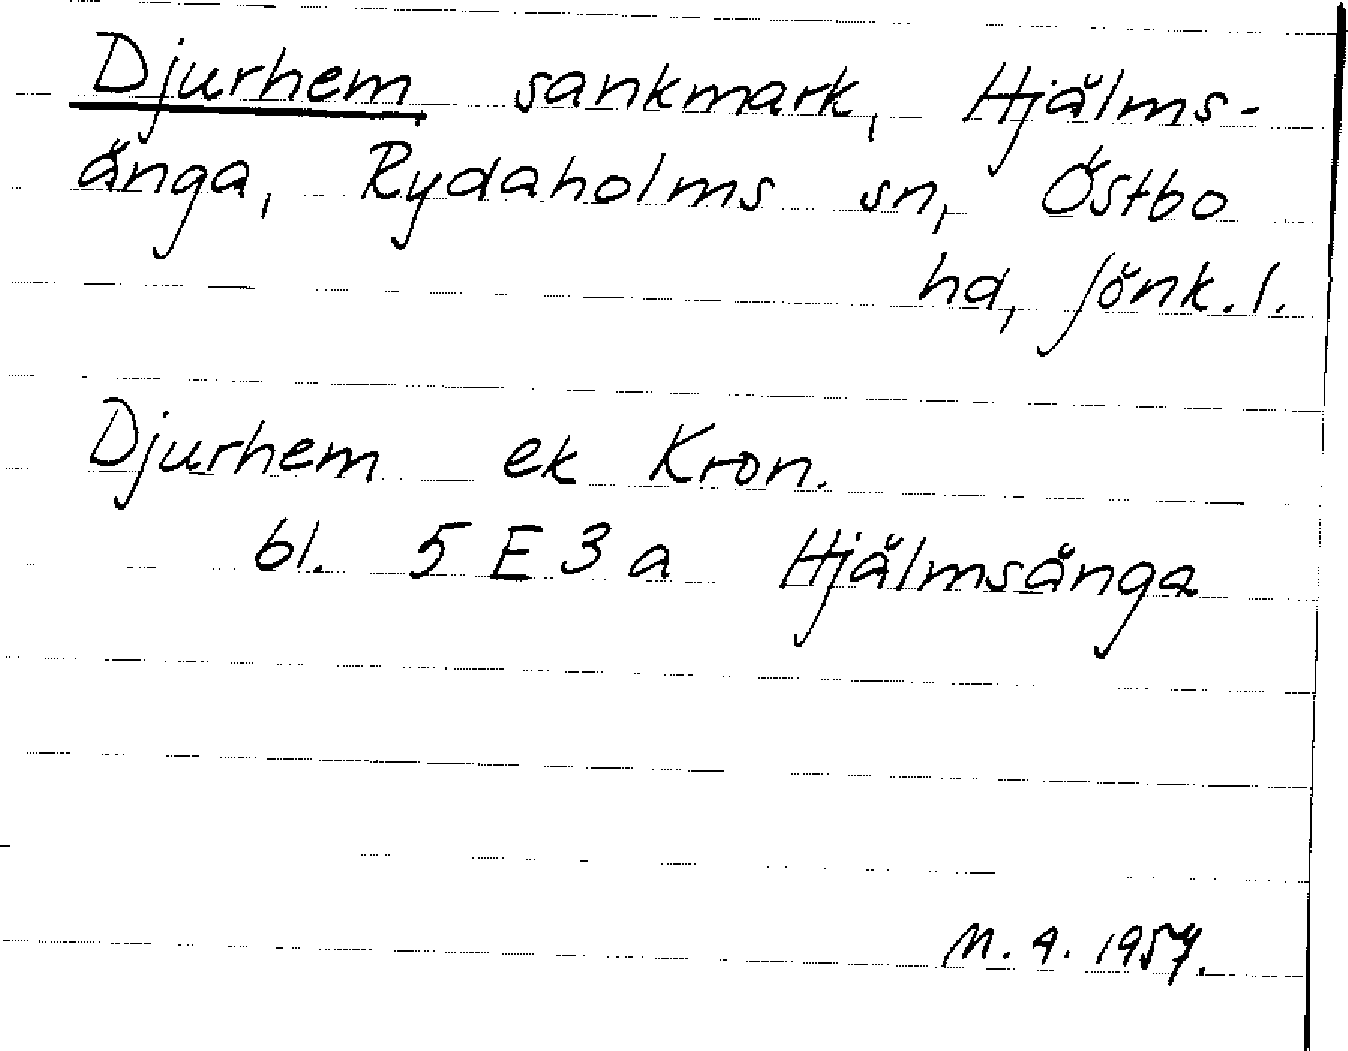 Djurhem sankmark, Hjälms-
änga, Rydaholms sn, Östbo
hd, Jönk. l.
Djurhem ek Kron.
bl. 5 E 3 a Hjälmsänga
M. A. 1957.